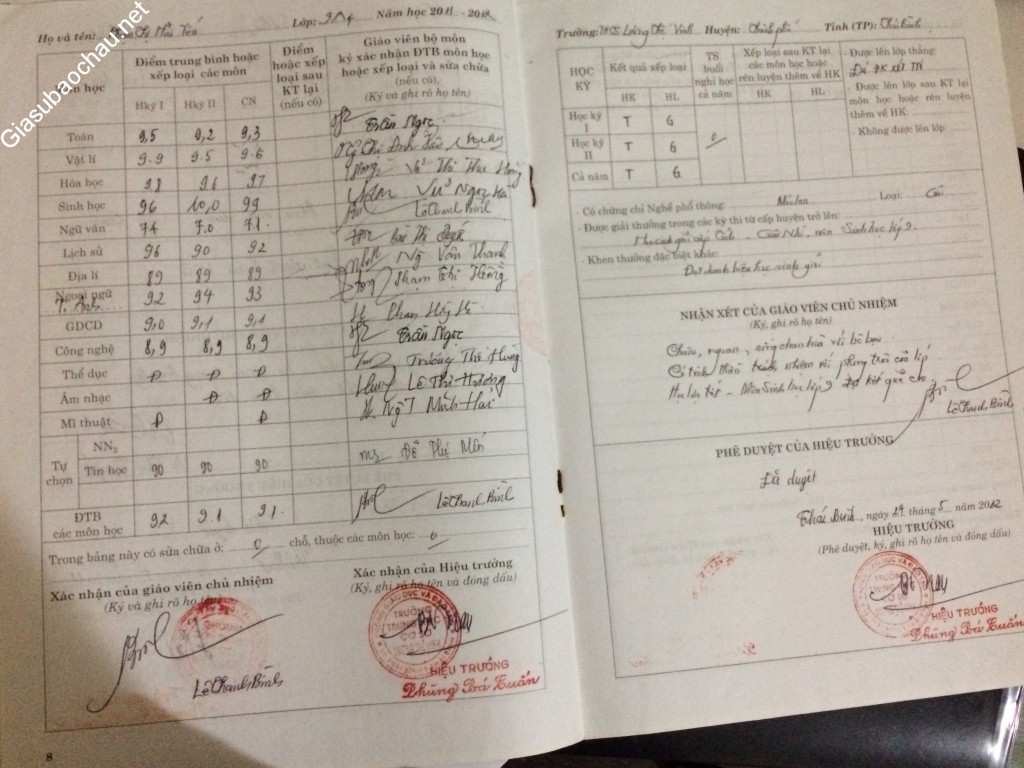 Giasubaochau.net
Họ và tên: Mai
Lớp: 9A4 Năm học 2011 - 2012
Môn học
Điểm trung bình hoặc xếp loại các môn
Hkỳ I Hkỳ II CN
Điểm hoặc xếp loại sau KT lại (nếu có)
Giáo viên bộ môn ký xác nhận ĐTB môn học hoặc xếp loại và sửa chữa (nếu có),
(Ký và ghi rõ họ tên)
Toán 9,5 9,2 9,3 Trần Ngọc
Vật lí 9.9 9.5 9.6
Hóa học 9.8 9.6 9.7
Sinh học 96 10,0 99 Lê Thanh Bình
Ngữ văn 74 7.0 7.1
Lịch sử 96 90 92 Ng Văn Thanh
Địa lí 89 89 89 Phạm Thị Hằng
Ngoại ngữ 92 94 93
T. Anh
GDCD 9,0 9,1 9,1 Trần Ngọc
Công nghệ 8,9 8,9 8,9 Trương Thị Hùng
Thể dục Đ Đ Đ Lê Thị Hương
Âm nhạc Đ Đ
Mĩ thuật Đ Đ
Tự chọn
NN2
Tin học 90 90 90
ĐTB các môn học 9.2 9.1 9.1 Lê Thanh Bình
Trong bảng này có sửa chữa ở: 0 chỗ, thuộc các môn học: 0
Xác nhận của giáo viên chủ nhiệm
(Ký và ghi rõ họ tên)
Lê Thanh Bình
Xác nhận của Hiệu trưởng
(Ký, ghi rõ họ tên và đóng dấu)
HIỆU TRƯỞNG
Phùng Bá Tuấn
8
Trường: THCS Lương Thế Vinh Huyện: Thành phố Tỉnh (TP): Thái Bình
HỌC KỲ
Kết quả xếp loại
HK HL
TS buổi nghỉ học cả năm
Xếp loại sau KT lại các môn học hoặc rèn luyện thêm về HK
HK HL
- Được lên lớp thẳng:
Đủ ĐK xét TN
- Được lên lớp sau KT lại môn học hoặc rèn luyện thêm về HK
- Không được lên lớp
Học kỳ I T G
Học kỳ II T G
Cả năm T G
0
- Có chứng chỉ Nghề phổ thông: Loại:
- Được giải thưởng trong các kỳ thi từ cấp huyện trở lên:
Học sinh giỏi cấp Tỉnh - Giải Nhì, môn Sinh học lớp 9
- Khen thưởng đặc biệt khác:
Đạt danh hiệu học sinh giỏi
NHẬN XÉT CỦA GIÁO VIÊN CHỦ NHIỆM
(Ký, ghi rõ họ tên)
Chăm, ngoan, sống chan hòa với bè bạn.
Có tinh thần trách nhiệm với phong trào của lớp
Học lực tốt - Môn Sinh học lớp 9 đạt kết quả cao
Lê Thanh Bình
PHÊ DUYỆT CỦA HIỆU TRƯỞNG
Đã duyệt
Thái Bình, ngày 24 tháng 5 năm 2012
HIỆU TRƯỞNG
(Phê duyệt, ký, ghi rõ họ tên và đóng dấu)
HIỆU TRƯỞNG
Phùng Bá Tuấn